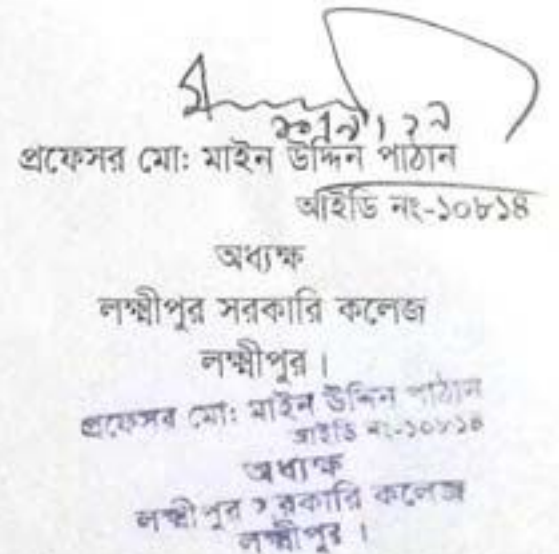 প্রফেসর মো: মাইন উদ্দিন পাঠান
আইডি নং-১০৮১৪
অধ্যক্ষ
লক্ষ্মীপুর সরকারি কলেজ
লক্ষ্মীপুর।
প্রফেসর মো: মাইন উদ্দিন পাঠান
আইডি নং-১০৮১৪
অধ্যক্ষ
লক্ষ্মীপুর রকারি কলেজ
লক্ষ্মীপুর।